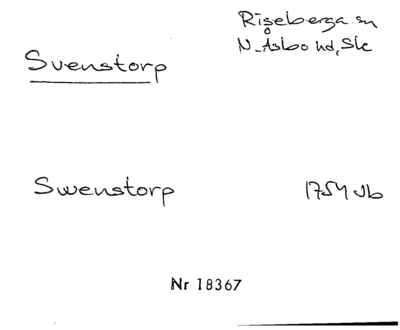 Riseberga sn
N. Åsbo hd, Sk
Svenstorp
Swenstorp 1754 Jb
Nr 18367